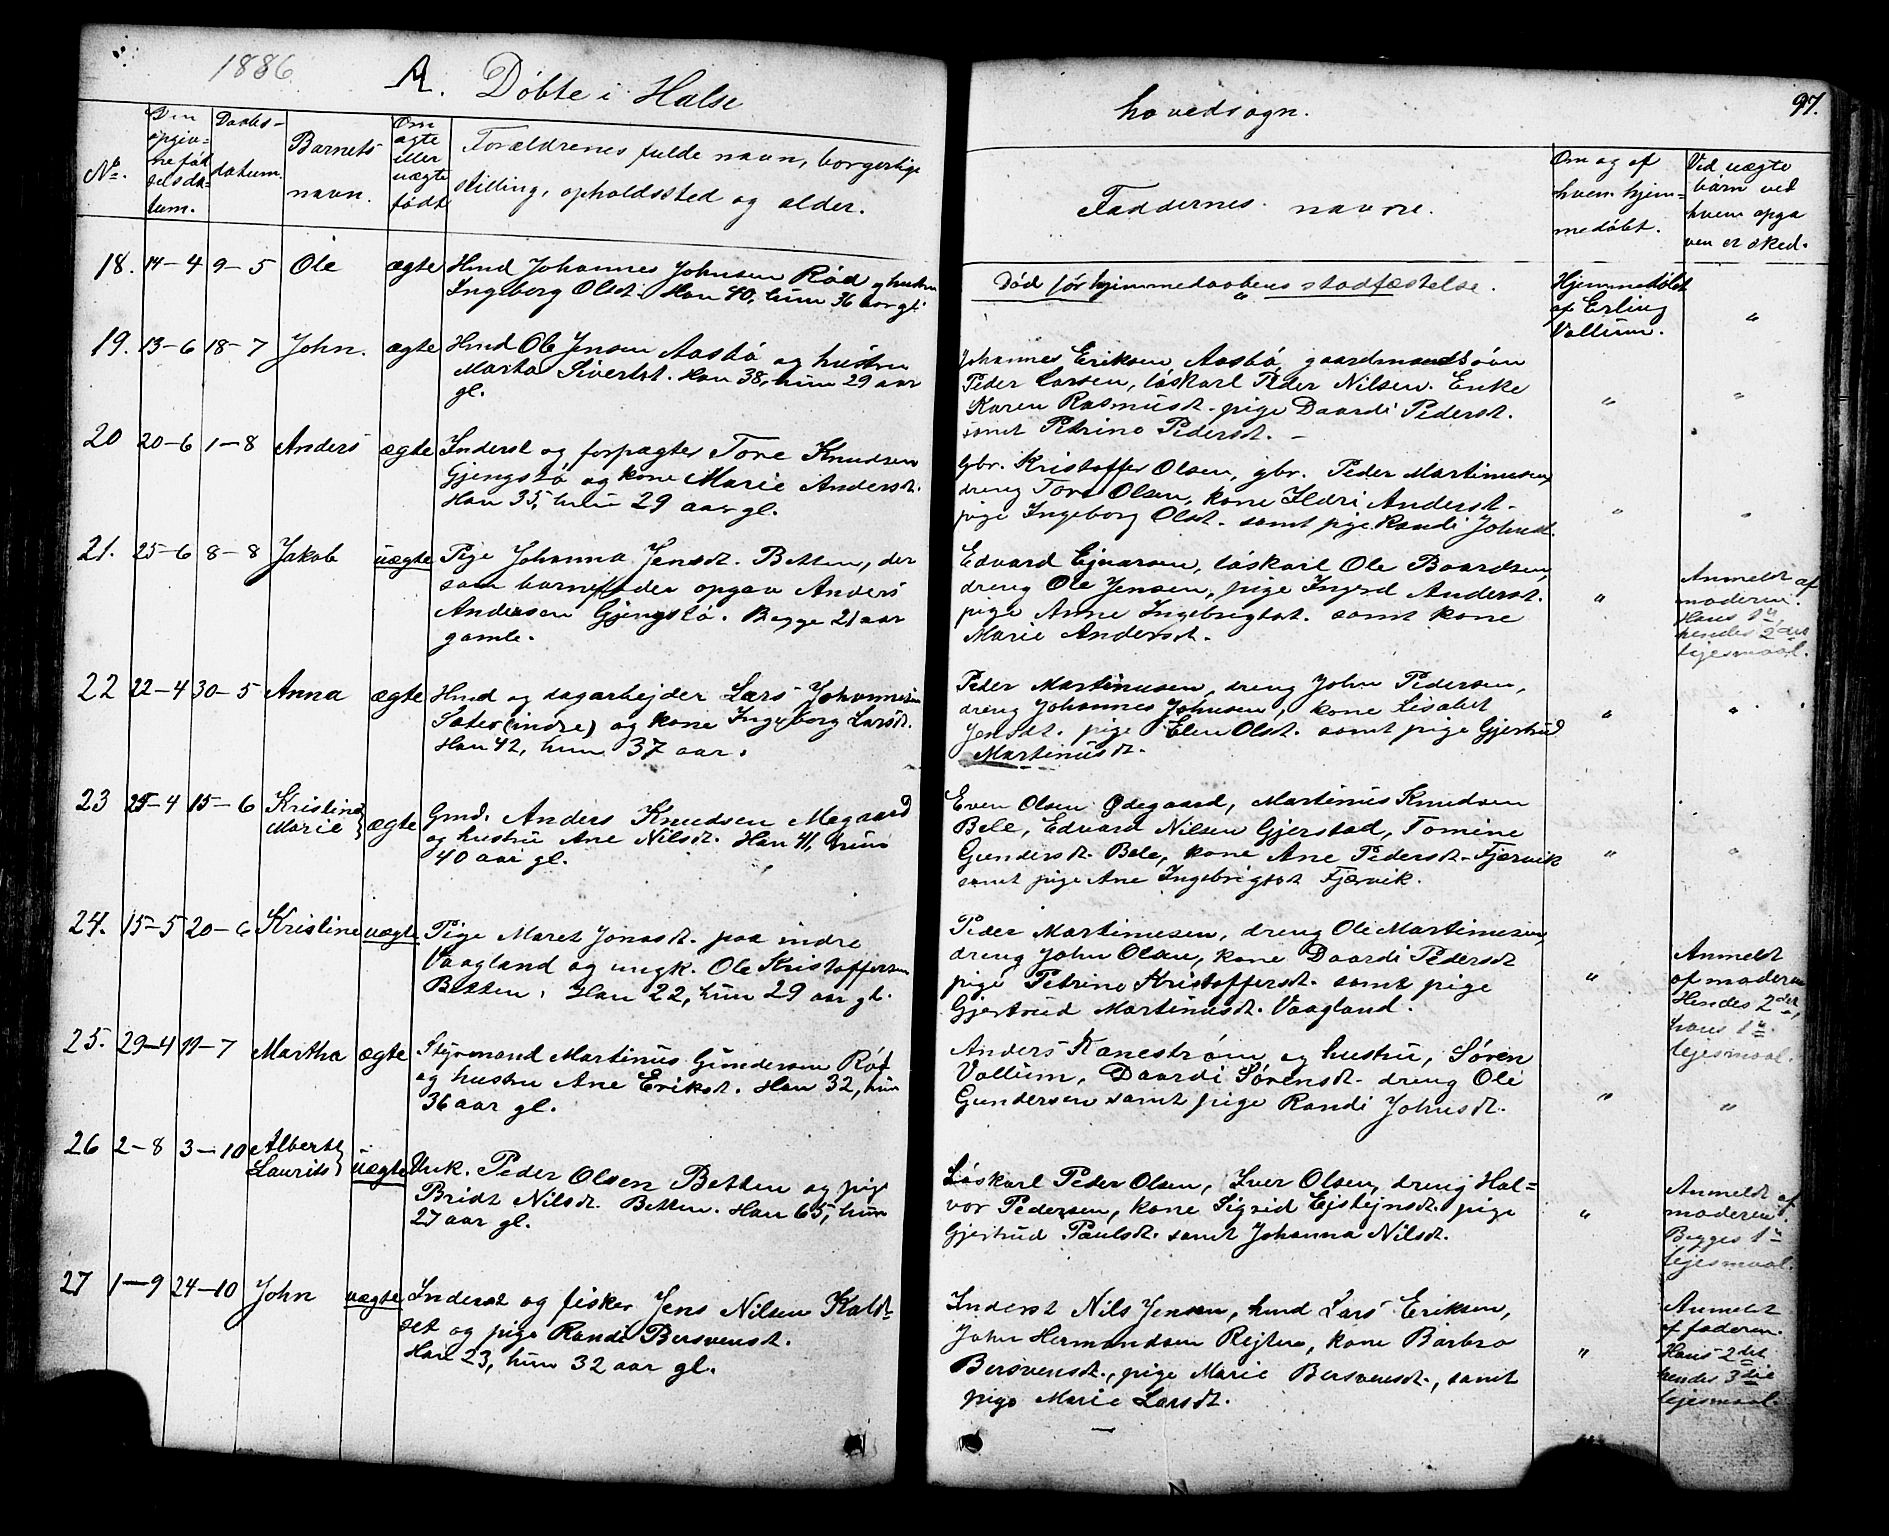 1886. A. Døbte i Halse hovedsogn. 97.
No. Den opgivne fødselsdatum. Daabsdatum. Barnets navn. Om ægte eller uægte født Forældrenes fulde navn, borgerlige stilling, opholdssted og alder. Faddernes navne. Om og af hvem hjemmedøbt. Ved uægte børn ved hvem opgaven er sked.
18. 14-4 9-5 Ole ægte Hmd Johannes Johnsen Rød og hustru
Ingeborg Olsdt. Han 40, hun 36 aar gl.
Død før hjemmedaabens stadfæstelse.
Hjemmedøbt
af Erling
Vollum.
"
19. 13-6 18-7 John. ægte Hmd Ole Jensen Aasbø og hustru
Marta Sivertst. Han 38, hun 29 aar
gl.
Johannes Eriksen Aasbø, gaardmandssøn
Peder Larsen, løskarl Peder Nilsen. Enke
Karen Rasmusdt. pige Daardi Pedersdt.
samt Petrine Pedersdt. -
" "
20 20-6 1-8 Anders ægte Inderst og forpagter Tore Knudsen
Gjengstø og kone Marie Andersdt.
Han 35, hun 29 aar gl.
Gbr. Kristoffer Olsen, gbr. Peder Martinusen,
dreng Tore Olsen, kone Ildri Andersdt.
pige Ingeborg Olsdt. samt pige Randi Johnsdt.
" "
21. 25-6 8-8 Jakob uægte Pige Johanna Jensdt. Betten, der
som barnefader opgav Anders
Andersen Gjengstø. Begge 21 aar
gamle.
Edvard Ejnarsen, løskarl Ole Baardsen,
dreng Ole Jensen, pige Ingrid Andersdt.
pige Anne Ingebrigtsdt. samt kone
Marie Andersdt.
"
Anmeldt af
moderen.
Hans 1ste
hendes 2det
lejesmaal.
22 22-4 30-5 Anna ægte Hmd og dagarbejder Lars Johannesen
Sæter (indre) og kone Ingeborg Larsdt.
Han 42, hun 37 aar.
Peder Martinusen, dreng John Pedersen,
dreng Johannes Johnsen, kone Lisabet
Jensdt. pige Elen Olsdt. samt pige Gjertrud
Martinusdt.
" "
23 25-4 15-6 Kristine
Marie ægte Gmd. Anders Knudsen Megaard
og hustru Ane Nilsdt. Han 41, hun
40 aar gl.
Even Olsen Ødegaard, Martinus Knudsen
Bele, Edvard Nilsen Gjerstad, Tomine
Gundersdt. Bele, kone Ane Pedersdt. Fjærvik
samt pige Ane Ingebrigtsdt Fjærvik.
" "
24. 15-5 20-6 Kristine uægte Pige Maret Jonasdt. paa indre
Vaagland og ungk. Ole Kristoffersen
Betten. Han 22, hun 29 aar gl.
Peder Martinusen, dreng Ole Martinusen,
dreng John Olsen, kone Daardi Pedersdt
pige Petrine Kristoffersdt. samt pige
Gjertrud Martinusdt. Vaagland.
"
Anmeldt
af moderen
Hendes 2det,
hans 1ste
lejesmaal.
25. 29-4 11-7 Martha ægte Styrmand Martinus Gundersen Rød
og hustru Ane Eriksdt. Han 32, hun
36 aar gl.
Anders Kanestrøm og hustru, Søren
Vollum, Daardi Sørensdt. dreng Ole
Gundersen samt pige Randi Johnsdt.
" "
26 2-8 3-10 Albert
Laurits uægte Unk. Peder Olsen Betten og pige
Bridt Nilsdt. Betten. Han 65, hun
27 aar gl.
Løskarl Peder Olsen, Iver Olsen, dreng Hal-
vor Pedersen, kone Sigrid Ejstejnsdt. pige
Gjertrud Paulsdt. samt Johanna Nilsdt.
"
Anmeldt af
moderen.
Begges 1ste
lejesmaal.
27 1-9 24-10 John uægte Inderst og fisker Jens Nilsen Kald-
set og pige Randi Bersvensdt.
Han 23, hun 32 aar gl.
Inderst Nils Jensen, hmd Lars Eriksen,
John Hermandsen Rejten, kone Barbro
Bersvensdt., pige Marie Bersvensdt., samt
pige Marie Larsdt.
"
Anmeldt
af faderen.
Hans 2det
hendes 3die
lejesmaal.